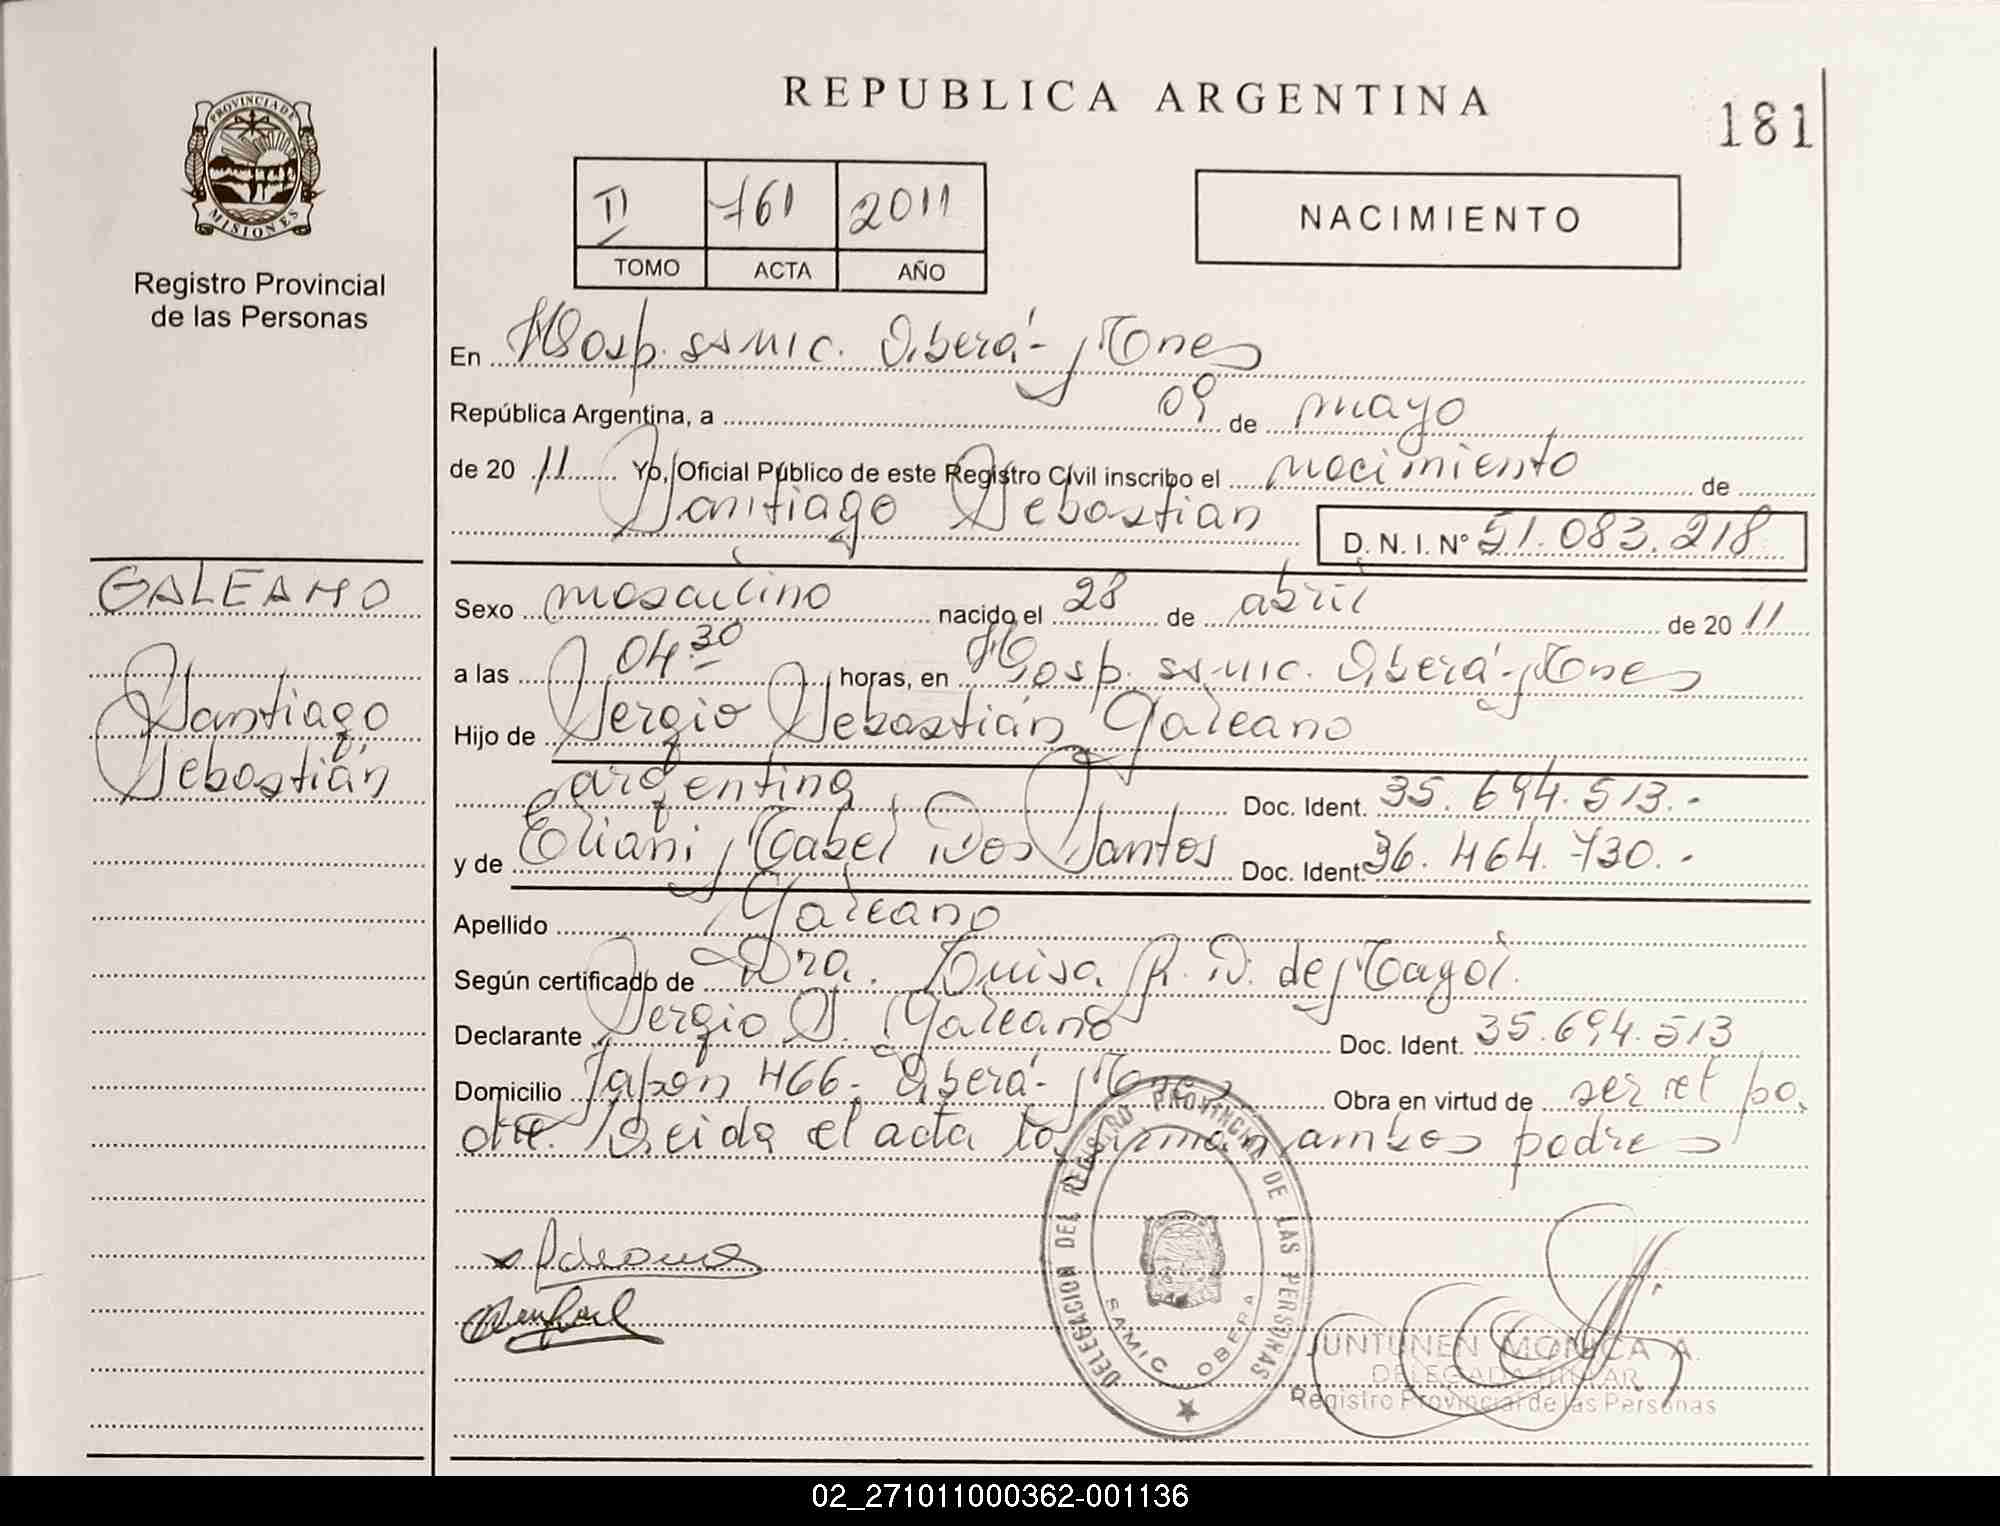 REPUBLICA ARGENTINA
181
PROVINCIA DE
MISIONES
Registro Provincial
de las Personas
II 761 2011
TOMO ACTA AÑO
NACIMIENTO
En Hosp. SAMIC. Oberá - Mnes
República Argentina, a 09 de mayo
de 20 11 Yo, Oficial Público de este Registro Civil inscribo el nacimiento de
Santiago Sebastian D. N. I. N° 51.083.218
GALEANO
Santiago
Sebastián
Sexo masculino nacido el 28 de abril de 20 11
a las 04.30 horas, en Hosp. SAMIC. Oberá - Mnes
Hijo de Sergio Sebastián Galeano
argentina Doc. Ident. 35.694.513.-
y de Eliani Mabel Dos Santos Doc. Ident. 36.464.730.-
Apellido Galeano
Según certificado de Dra. Luisa R. D. de Magoi.
Declarante Sergio S. Galeano Doc. Ident. 35.694.513
Domicilio Japón 466 - Oberá - Mnes Obra en virtud de ser el pa
dre. Leida el acta la firman ambos padres
DELEGACION DEL REGISTRO PROVINCIAL DE LAS PERSONAS
SAMIC OBERA
JUNTUNEN MONICA A.
DELEGADA TITULAR
Registro Provincial de las Personas
02_271011000362-001136